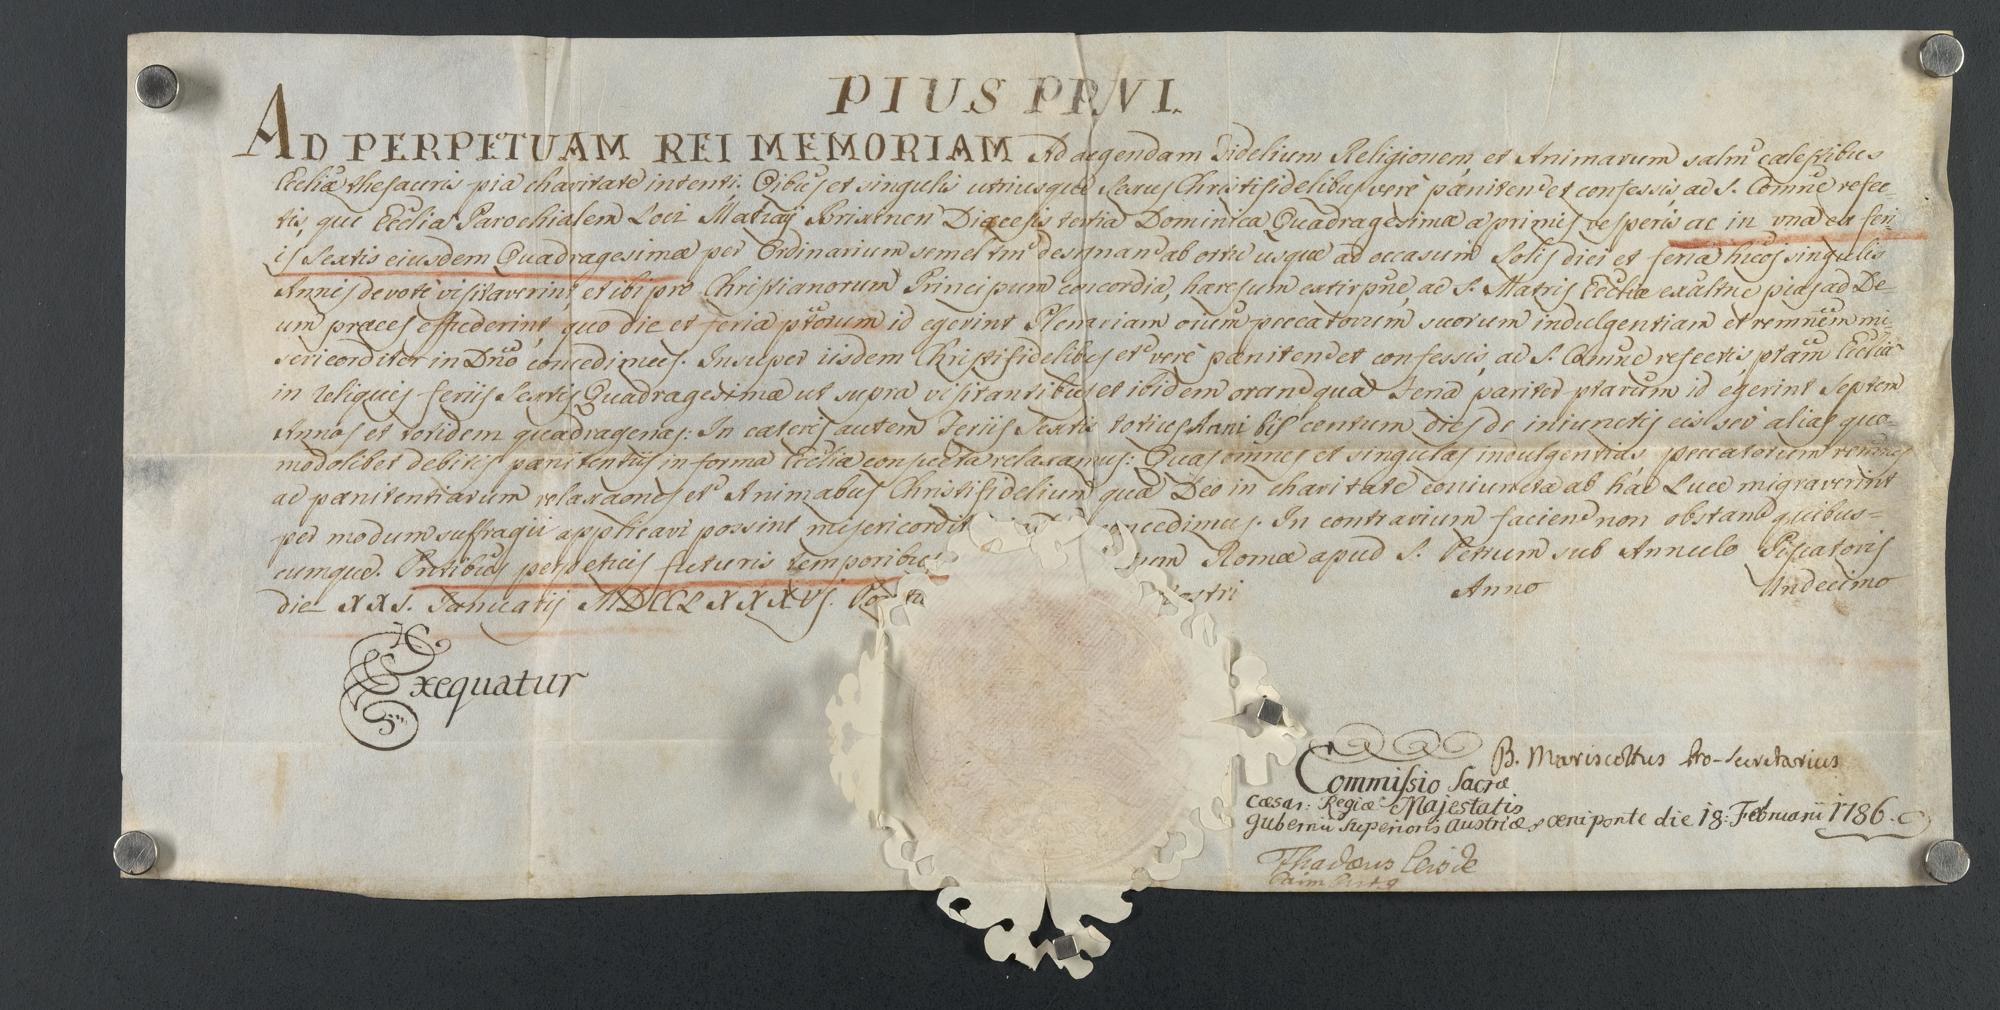 PIUS PP. VI.
AD PERPETUAM REI MEMORIAM Ad augendam Fidelium Religionem et Animarum salm̃ cælestibus
Ecclĩæ thesauris pia charitate intenti. Oĩbus et singulis utriusque sexus Christifidelibus verè pœnitenẽ et confessis, ac S. Comñe refec-
tis, qui Ecclĩa Parochialem Loci Matraÿ Brixinen̄ Diœcesis tertia Dominica Quadragesimæ a primis vesperis ac in una ex feri-
is sextis eiusdem Quadragesimæ per Ordinarium semel tm̃ designanđ ab ortu usque ad occasum Solis diei et feriæ hm̃oi singulis
Annis devotè visitaverint et ibi pro Christianorum Principum concordia, hæresum extirpñe, ac S. Matris Ecclĩæ exaltñe pias ad De-
um præces effuderint, quo die et feria ptõrum id egerint Plenariam oĩum peccatorum suorum indulgentiam et remm̃em mi-
sericorditer in Dño concedimus. Insuper iisdem Christifidelibus etc̃ verè pœnitenđ et confessis, ac S. Comñe refectis ptãm Ecclĩa
in reliquis feriis sextis Quadragesimæ ut supra visitantibus et ibidem oranđ qua Feria pariter ptarum id egerint Septem
Annos et totidem quadragenas: In cæteris autem Feriis Sextis totius Anni bis centum dies de iniunctis eis seù alias quo-
modolibet debitis pœnitentiis in forma Ecclĩæ consueta relaxamus: Quas omnes et singulas indulgentias peccatorum remm̃es
ac pœnitentiarum relaxaones etc̃ Animabus Christifidelium quæ Deo in charitate coniunctæ ab hac Luce migraverint
per modum suffragii applicari possint misericordit concedimus. In contrarium facien̄ non obstanđ quibus=
cumque. Pñtibus perpetuis futuris temporibus tum Romæ apud S. Petrum sub Annulo Piscatoris
die XXI. Januarij MDCCLXXXVI. Pont nostri Anno Undecimo
Exequatur
B. Mariscottus Pro-Secretarius
Commissio Sacræ
Cæsar: Regiæ Majestatis
Gubernii Superioris Austriæ, Œniponte die 18. Februarii 1786.
Thadæus